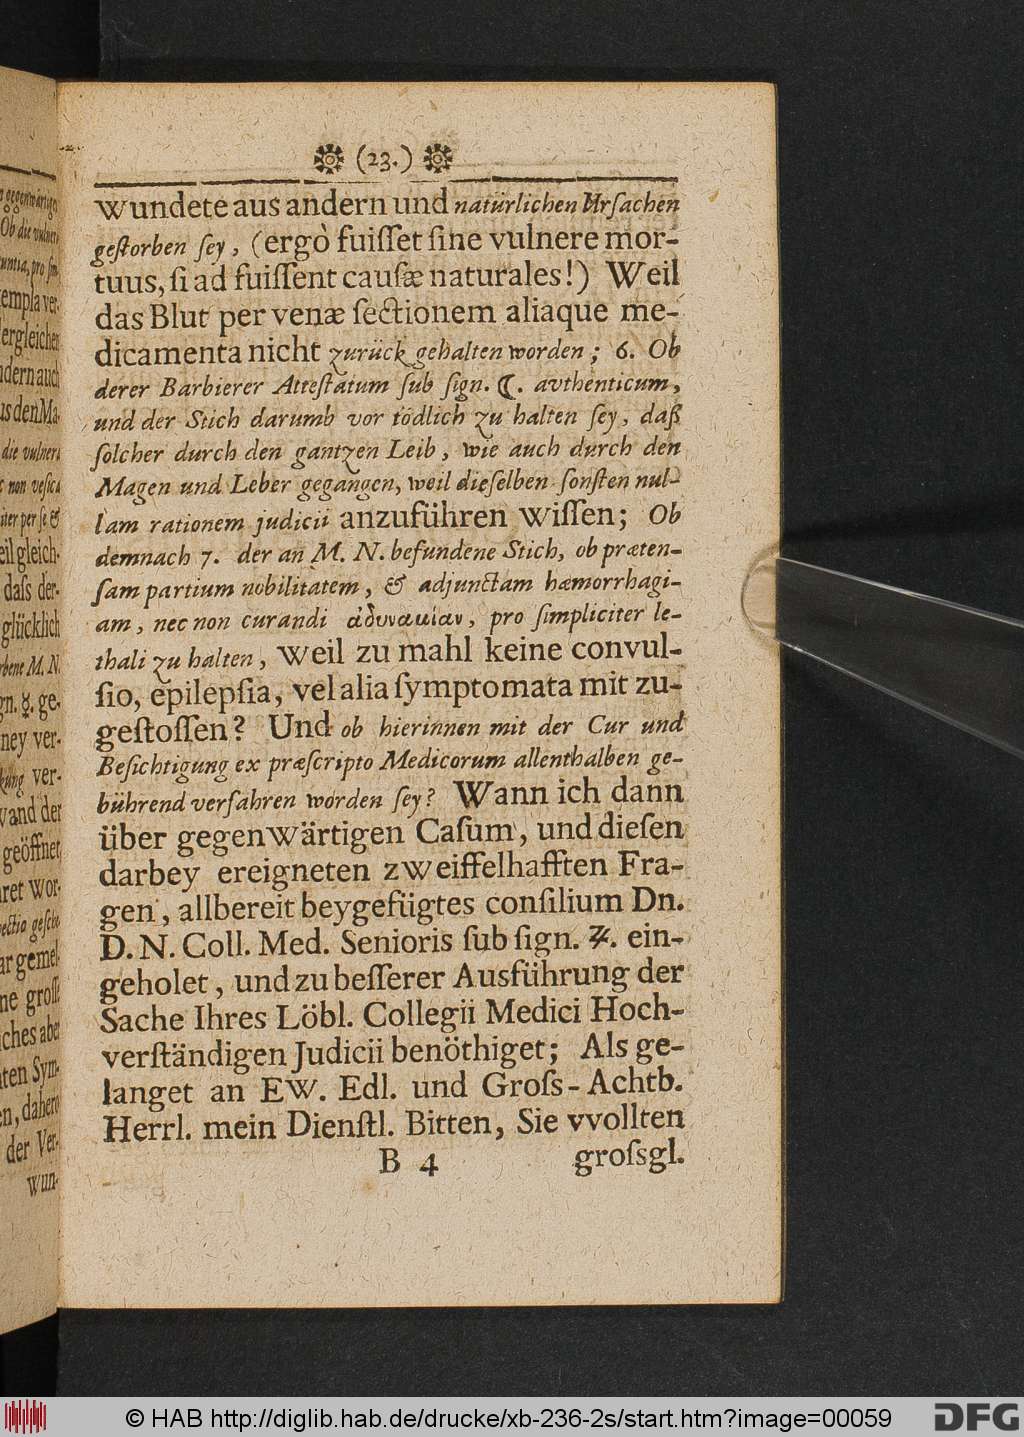 (23.)
wundete aus andern und natürlichen Ursachen
gestorben sey, (ergò fuiſſet ſine vulnere mor-
tuus, ſi ad fuiſſent cauſæ naturales!) Weil
das Blut per venæ ſectionem aliaque me-
dicamenta nicht zurück gehalten worden; 6. Ob
derer Barbierer Atteſtatum ſub ſign. ☾. avthenticum,
und der Stich darumb vor tödlich zu halten ſey, daß
ſolcher durch den gantzen Leib, wie auch durch den
Magen und Leber gegangen, weil dieſelben ſonſten nul-
lam rationem judicii anzuführen wiſſen; Ob
demnach 7. der an M. N. befundene Stich, ob præten-
ſam partium nobilitatem, & adjunctam hæmorrhagi-
am, nec non curandi ἀδυναμίαν, pro ſimpliciter le-
thali zu halten, weil zu mahl keine convul-
ſio, epilepſia, vel alia ſymptomata mit zu-
geſtoſſen? Und ob hierinnen mit der Cur und
Beſichtigung ex præſcripto Medicorum allenthalben ge-
bührend verfahren worden ſey? Wann ich dann
über gegenwärtigen Caſum, und dieſen
darbey ereigneten zweiffelhafften Fra-
gen, allbereit beygefügtes conſilium Dn.
D. N. Coll. Med. Senioris ſub ſign. ♃. ein-
geholet, und zu beſſerer Ausführung der
Sache Ihres Löbl. Collegii Medici Hoch-
verſtändigen Judicii benöthiget; Als ge-
langet an EW. Edl. und Groſs-Achtb.
Herrl. mein Dienſtl. Bitten, Sie vvollten
B 4 groſsgl.
gegenwärtigen
Ob die vulnera
untia, pro ſim-
empla ver-
ergleichen
ndern auch
us den Ma-
die vulnera
non veſica
iter per ſe &
eil gleich-
daſs der-
glücklich
rbene M. N.
gn. ☿. ge-
ney ver-
kung ver-
wand der
geöffnet
ret wor-
ectio geſche
ar gemel-
ne groſſe
ches aber
ten Sym-
en, dahero
der Ver-
wun-
© HAB http://diglib.hab.de/drucke/xb-236-2s/start.htm?image=00059
DFG